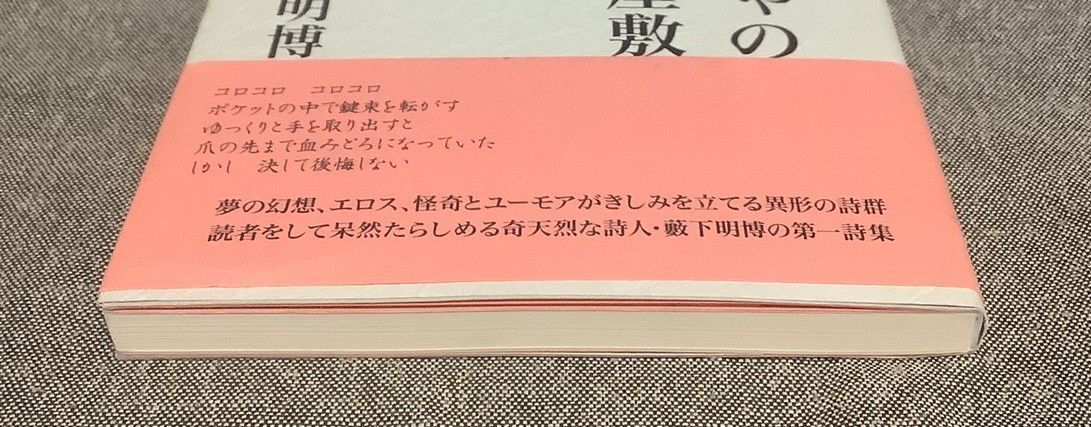 やの
屋敷
明博
コロコロ　コロコロ
ポケットの中で鍵束を転がす
ゆっくりと手を取り出すと
爪の先まで血みどろになっていた
しかし　決して後悔しない
夢の幻想、エロス、怪奇とユーモアがきしみを立てる異形の詩群
読者をして呆然たらしめる奇天烈な詩人・藪下明博の第一詩集